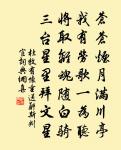 蒼蒼煙月滿川亭
我有勞歌一為聽
將取離魂隨白騎
三台星里拜文星
杜牧有懷重送斛斯判
官詞典網